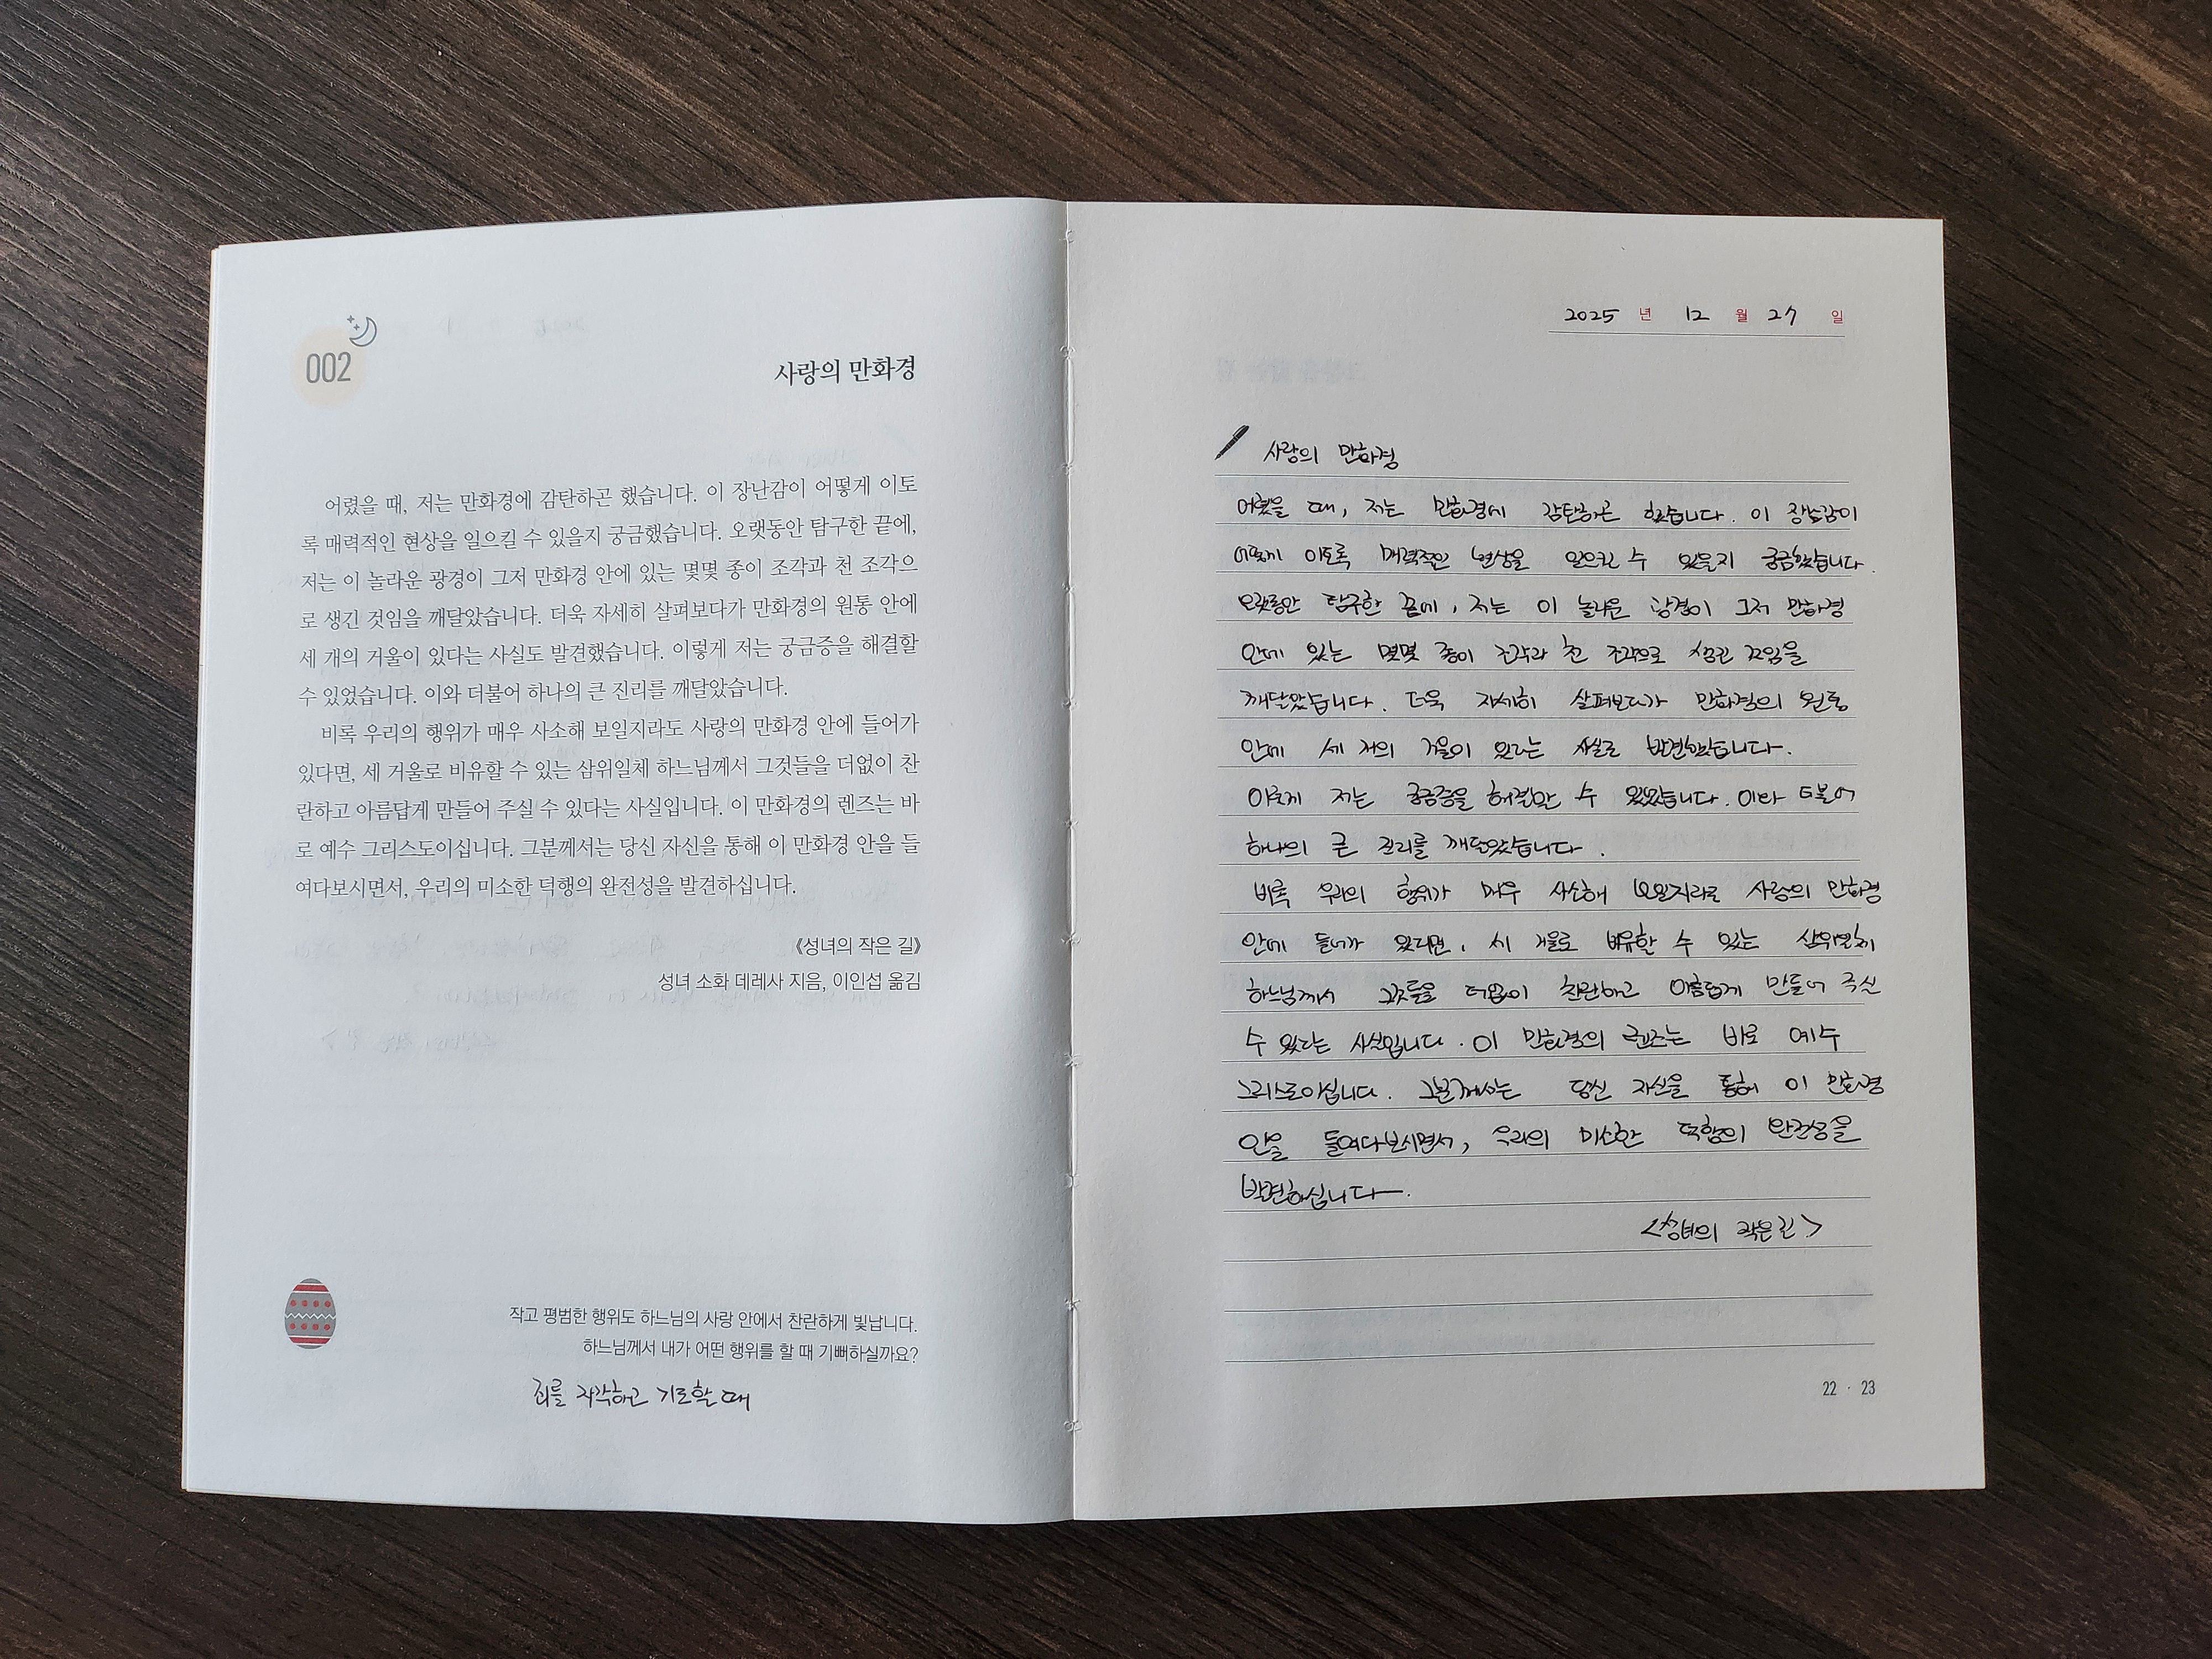 002
사랑의 만화경
어렸을 때, 저는 만화경에 감탄하곤 했습니다. 이 장난감이 어떻게 이토
록 매력적인 현상을 일으킬 수 있을지 궁금했습니다. 오랫동안 탐구한 끝에,
저는 이 놀라운 광경이 그저 만화경 안에 있는 몇몇 종이 조각과 천 조각으
로 생긴 것임을 깨달았습니다. 더욱 자세히 살펴보다가 만화경의 원통 안에
세 개의 거울이 있다는 사실도 발견했습니다. 이렇게 저는 궁금증을 해결할
수 있었습니다. 이와 더불어 하나의 큰 진리를 깨달았습니다.
비록 우리의 행위가 매우 사소해 보일지라도 사랑의 만화경 안에 들어가
있다면, 세 거울로 비유할 수 있는 삼위일체 하느님께서 그것들을 더없이 찬
란하고 아름답게 만들어 주실 수 있다는 사실입니다. 이 만화경의 렌즈는 바
로 예수 그리스도이십니다. 그분께서는 당신 자신을 통해 이 만화경 안을 들
여다보시면서, 우리의 미소한 덕행의 완전성을 발견하십니다.
《성녀의 작은 길》
성녀 소화 데레사 지음, 이인섭 옮김
작고 평범한 행위도 하느님의 사랑 안에서 찬란하게 빛납니다.
하느님께서 내가 어떤 행위를 할 때 기뻐하실까요?
죄를 자각하고 기도할 때
2025 년 12 월 27 일
사랑의 만화경
어렸을 때, 저는 만화경에 감탄하곤 했습니다. 이 장난감이
어떻게 이토록 매력적인 현상을 일으킬 수 있을지 궁금했습니다.
오랫동안 탐구한 끝에, 저는 이 놀라운 광경이 그저 만화경
안에 있는 몇몇 종이 조각과 천 조각으로 생긴 것임을
깨달았습니다. 더욱 자세히 살펴보다가 만화경의 원통
안에 세 개의 거울이 있다는 사실도 발견했습니다.
이렇게 저는 궁금증을 해결할 수 있었습니다. 이와 더불어
하나의 큰 진리를 깨달았습니다.
비록 우리의 행위가 매우 사소해 보일지라도 사랑의 만화경
안에 들어가 있다면, 세 거울로 비유할 수 있는 삼위일체
하느님께서 그것들을 더없이 찬란하고 아름답게 만들어 주실
수 있다는 사실입니다. 이 만화경의 렌즈는 바로 예수
그리스도이십니다. 그분께서는 당신 자신을 통해 이 만화경
안을 들여다보시면서, 우리의 미소한 덕행의 완전성을
발견하십니다.
<성녀의 작은 길>
22 · 23